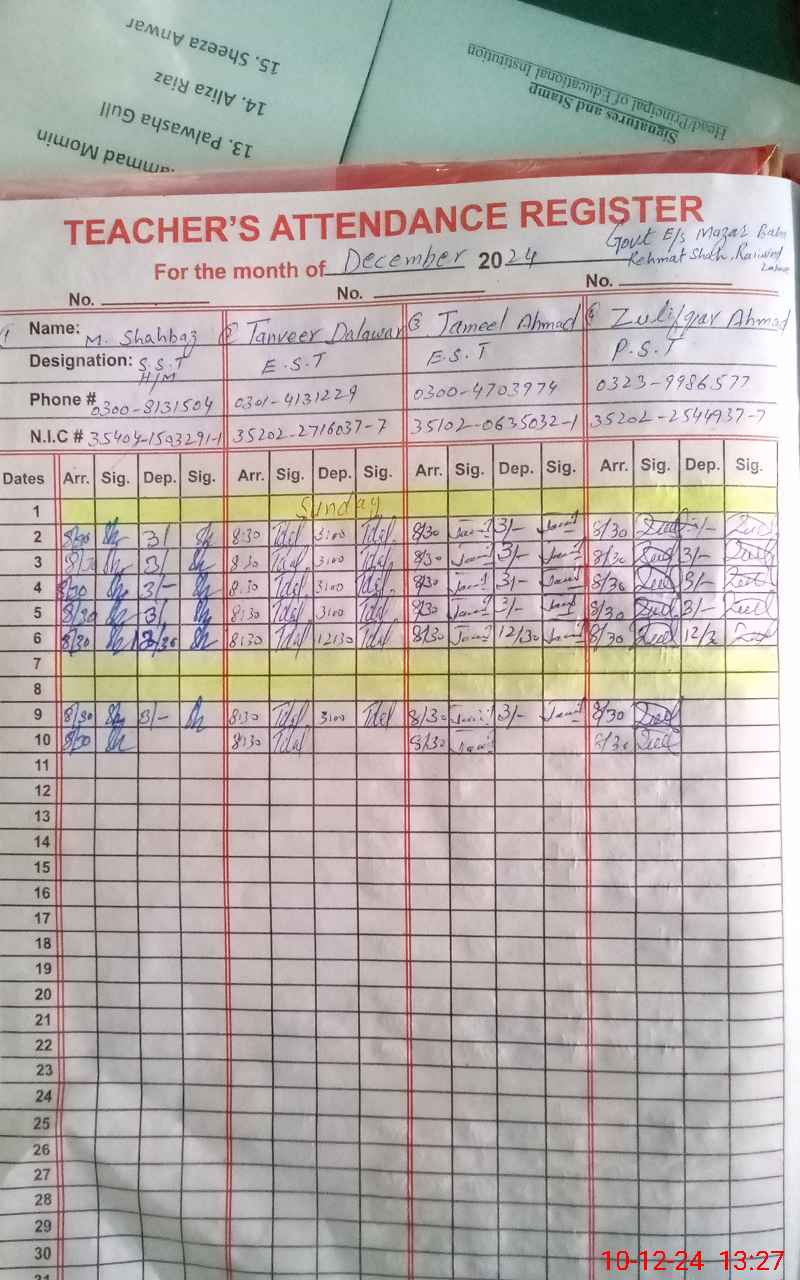 15. Sheeza Anwar
14. Aliza Riaz
13. Palwasha Gull
ammad Momin
Signatures and Stamp
Head/Principal of Educational Institution
TEACHER'S ATTENDANCE REGISTER
Govt E/S Mazar Baba
Rehmat Shah, Raiwind
Lahore
For the month of December 2024
No. No. No.
1 Name: M. Shahbaz 2 Tanveer Dalawar 3 Jameel Ahmad 4 Zulifqar Ahmad
Designation: S.S.T E.S.T E.S.T P.S.T
H/M
Phone # 0300-8131504 0301-4131229 0300-4703974 0323-9986577
N.I.C # 35404-1593291-1 35202-2716037-7 35102-0635032-1 35202-2544937-7
Dates Arr. Sig. Dep. Sig. Arr. Sig. Dep. Sig. Arr. Sig. Dep. Sig. Arr. Sig. Dep. Sig.
1 Sunday
2 8/30 3/ 8:30 3:00 8/30 3/- 8/30 3/-
3 8/30 3/ 8:30 3:00 8/30 3/- 8/30 3/-
4 8/30 3/- 8:30 3:00 8/30 3/- 8/30 3/-
5 8/30 3/ 8:30 3:00 8/30 3/- 8/30 3/-
6 8/30 12/30 8:30 12:30 8/30 12/30 8/30 12/3
7
8
9 8/30 3/- 8:30 3:00 8/30 3/- 8/30
10 8/30 8:30 8/30 8/30
11
12
13
14
15
16
17
18
19
20
21
22
23
24
25
26
27
28
29
30
31
10-12-24 13:27